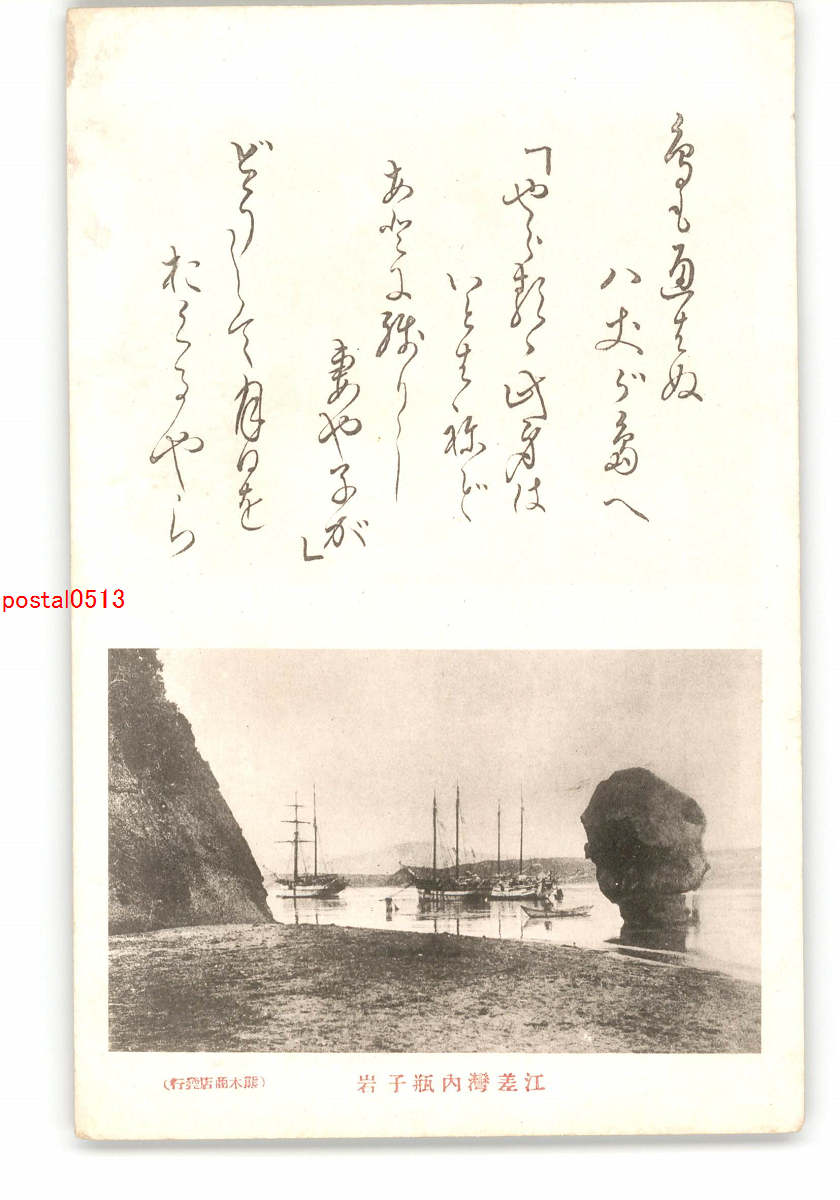 鳥も通はぬ
八丈が島へ
「やらるゝ此身は
いとはねど
あとに残りし
妻や子が」
どうして月日を
おくるやら
postal0513
江差灣内瓶子岩
(熊木商店発行)